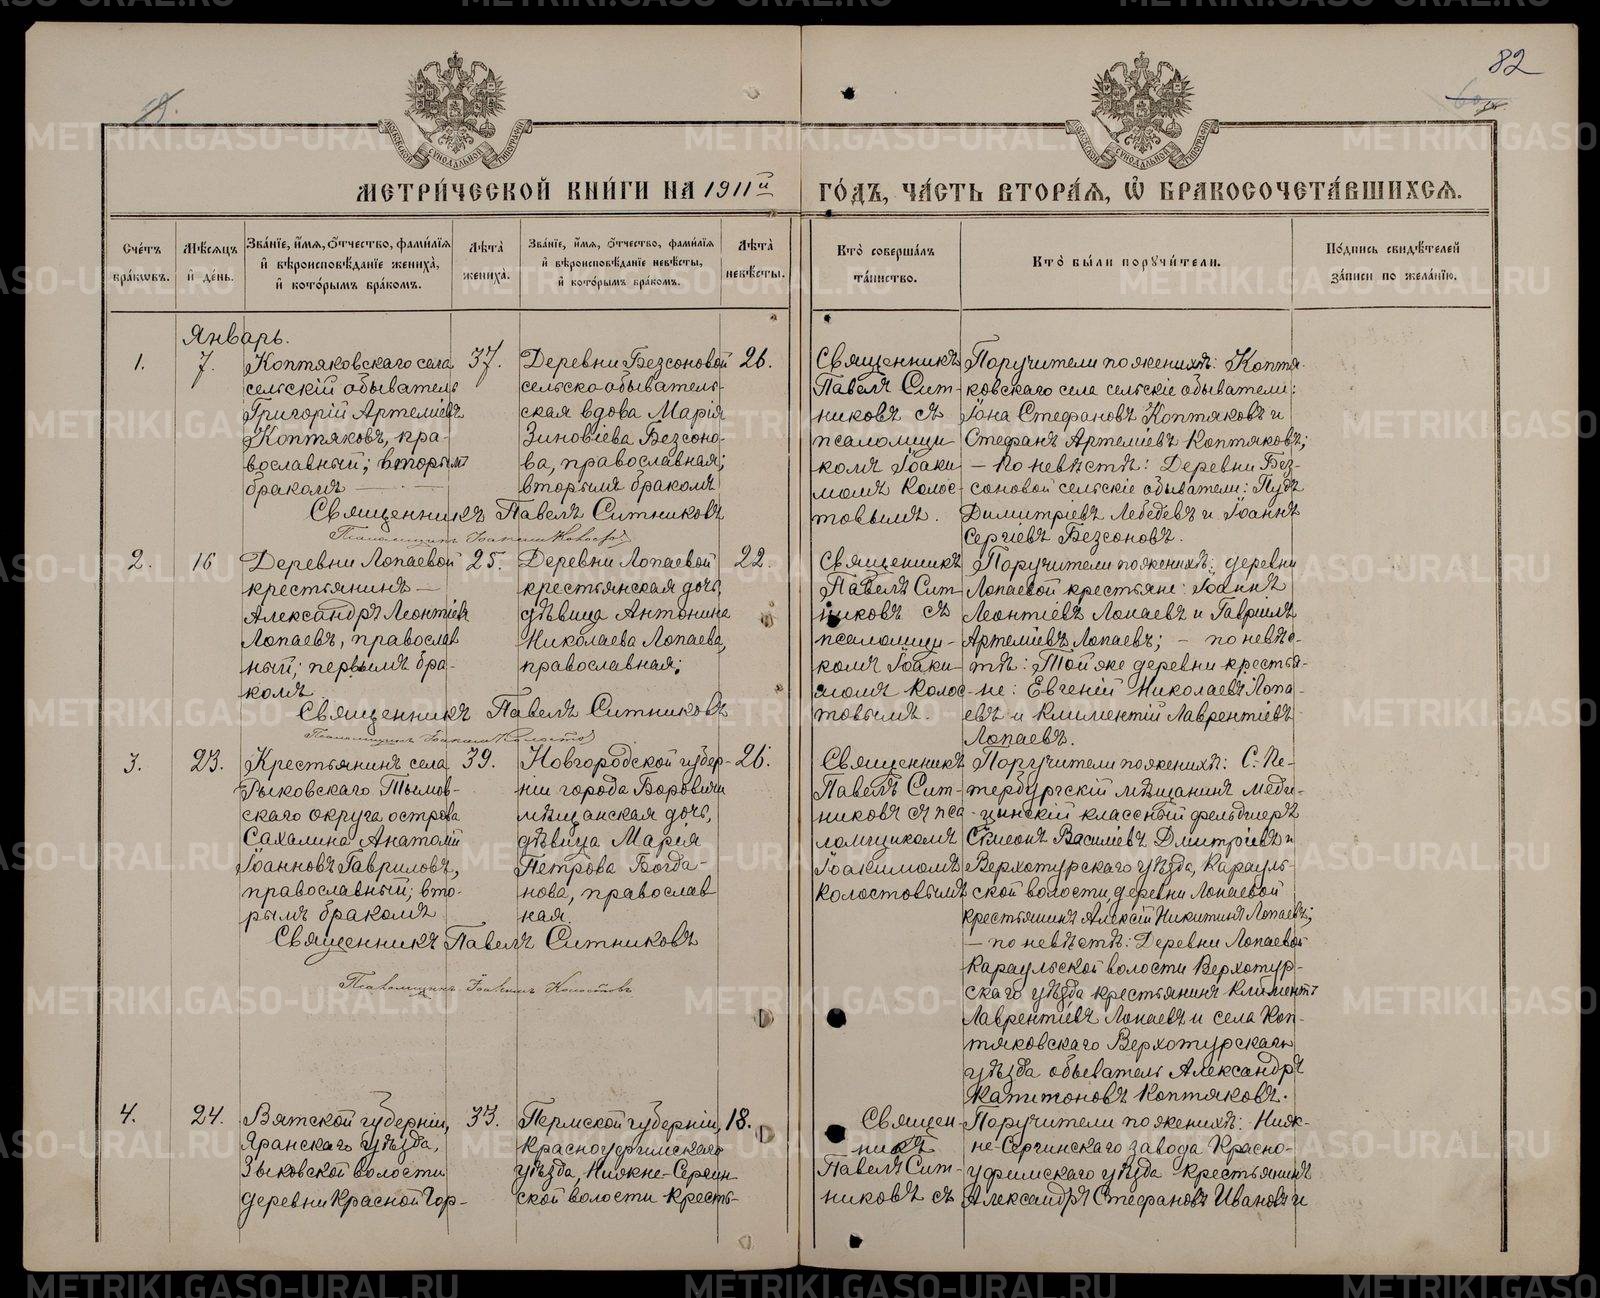 82
МЕТРИ́ЧЕСКОЙ КНИ́ГИ НА 1911й ГО́ДЪ, ЧА́СТЬ ВТОРА́Ѧ, Ѽ БРАКОСОЧЕТА́ВШИХСѦ.
Сче́тъ бра́кѡвъ.
Мѣ́сѧцъ и҆ де́нь.
Зва́нїе, и҆́мѧ, ѻ҆́тчество, фами́лїѧ и҆ вѣроисповѣ́данїе жениха̀, и҆ кото́рымъ бра́комъ.
Лѣ́та жениха̀.
Зва́нїе, и҆́мѧ, ѻ҆́тчество, фами́лїѧ и҆ вѣроисповѣ́данїе невѣ́сты, и҆ кото́рымъ бра́комъ.
Лѣ́та невѣ́сты.
Кто̀ соверша́лъ та́инство.
Кто̀ бы́ли поручи́тели.
По́дпись свидѣ́телей за́писи по жела́нїю.
Январь.
1.
7.
Коптяковскаго села
сельскій обыватель
Григорій Артеміевъ
Коптяковъ, пра-
вославный; вторымъ
бракомъ
37.
Деревни Безсоновой
сельско обыватель-
ская вдова Марія
Зиновіева Безсоно-
ва, православная;
вторымъ бракомъ
26.
Священникъ
Павелъ Сит-
никовъ съ
псаломщи-
комъ Іоаки-
момъ Колос-
товымъ.
Поручители по женихѣ: Коптя-
ковскаго села сельскіе обыватели:
Іона Стефановъ Коптяковъ и
Стефанъ Артеміевъ Коптяковъ;
— по невѣстѣ: Деревни Без-
соновой сельскіе обыватели: Пудъ
Димитріевъ Лебедевъ и Іоаннъ
Сергіевъ Безсоновъ.
Священникъ Павелъ Ситниковъ
Псаломщикъ Іоакимъ Колостовъ
2.
16
Деревни Лопаевой
крестьянинъ —
Александръ Леонтіевъ
Лопаевъ, православ
ный; первымъ бра-
комъ
25.
Деревни Лопаевой
крестьянская дочь,
дѣвица Антонина
Николаева Лопаева,
православная;
22.
Священникъ
Павелъ Сит-
никовъ съ
псаломщи-
комъ Іоаки-
момъ Колос-
товымъ.
Поручители по женихѣ: деревни
Лопаевой крестьяне: Іоаннъ
Леонтіевъ Лопаевъ и Гавріилъ
Артеміевъ Лопаевъ; — по невѣс-
тѣ: Той же деревни крестья-
не: Евгеній Николаевъ Лопа-
евъ и Климентій Лаврентіевъ
Лопаевъ.
Священникъ Павелъ Ситниковъ
Псаломщикъ Іоакимъ Колостовъ
3.
23.
Крестьянинъ села
Рыковскаго Тымов-
скаго округа, острова
Сахалина Анатолій
Іоанновъ Гавриловъ,
православный; вто-
рымъ бракомъ
39.
Новгородской губер-
ніи города Боровичи
мѣщанская дочь,
дѣвица Марія
Петрова Богда-
нова, православ
ная.
26.
Священникъ
Павелъ Сит-
никовъ съ пса-
ломщикомъ
Іоакимомъ
Колостовымъ
Поручители по женихѣ: С.-Пе-
тербургскій мѣщанинъ меди-
цинскій классный фельдшеръ
Симеонъ Василіевъ Дмитріевъ и
Верхотурскаго уѣзда, Карауль-
ской волости, деревни Лопаевой
крестьянинъ Алексій Никитинъ Лопаевъ;
— по невѣстѣ: Деревни Лопаевой
Караульской волости Верхотур-
скаго уѣзда крестьянинъ Климентъ
Лаврентіевъ Лопаевъ и села Коп-
тяковскаго Верхотурскаго
уѣзда обыватель Александръ
Капитоновъ Коптяковъ.
Священникъ Павелъ Ситниковъ
Псаломщикъ Іоакимъ Колостовъ
4.
24.
Вятской губерніи,
Яранскаго уѣзда,
Зыковской волости
деревни Красной Гор-
33.
Пермской губерніи,
Красноуфимскаго
уѣзда, Нижне-Сергин
ской волости кресть-
18.
Священ-
никъ
Павелъ Сит-
никовъ съ
Поручители по женихѣ: Ниж-
не-Сергинскаго завода Красно-
уфимскаго уѣзда крестьянинъ
Александръ Стефановъ Ивановъ и